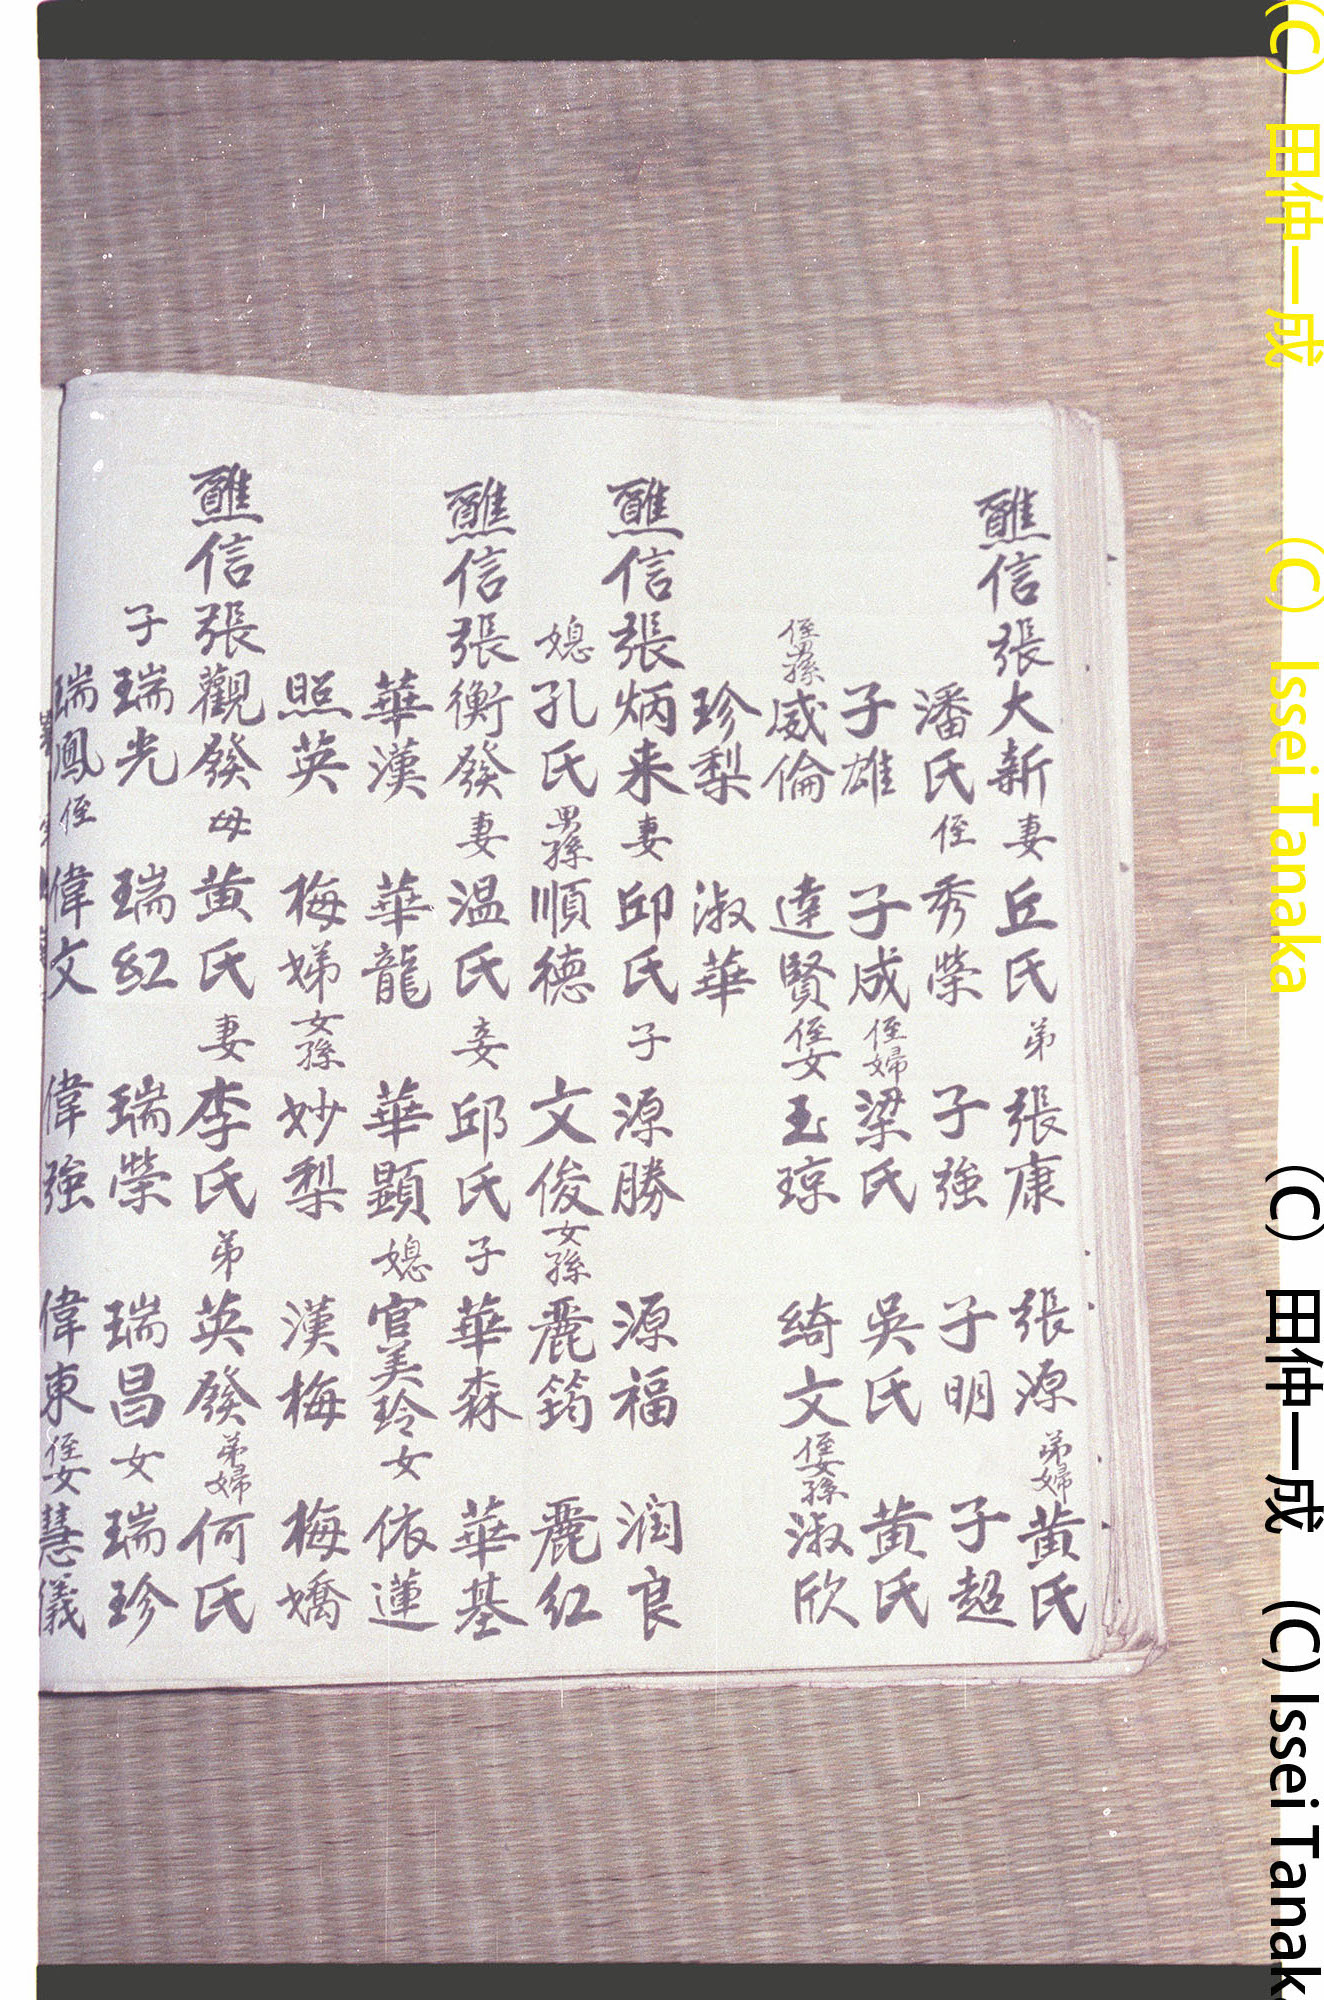 醮信張大新妻丘氏弟張康張源弟婦黃氏
潘氏侄秀榮子強子明子超
子雄子成侄婦梁氏吳氏黃氏
侄男孫威倫達賢侄女玉琼綺文侄女孫淑欣
珍梨淑華
醮信張炳来妻邱氏子源勝源福润良
媳孔氏男孫順德文俊女孫麗筠麗紅
醮信張衡發妻温氏妾邱氏子華森華基
華漢華龍華顯媳官美玲女依蓮
照英梅娣女孫妙梨漢梅梅嬌
醮信張觀發母黃氏妻李氏弟英發弟婦何氏
子瑞光瑞紅瑞榮瑞昌女瑞珍
瑞鳳侄偉文偉強偉東侄女慧儀
(C) 田仲一成 (C) Issei Tanaka (C) 田仲一成 (C) Issei Tanak